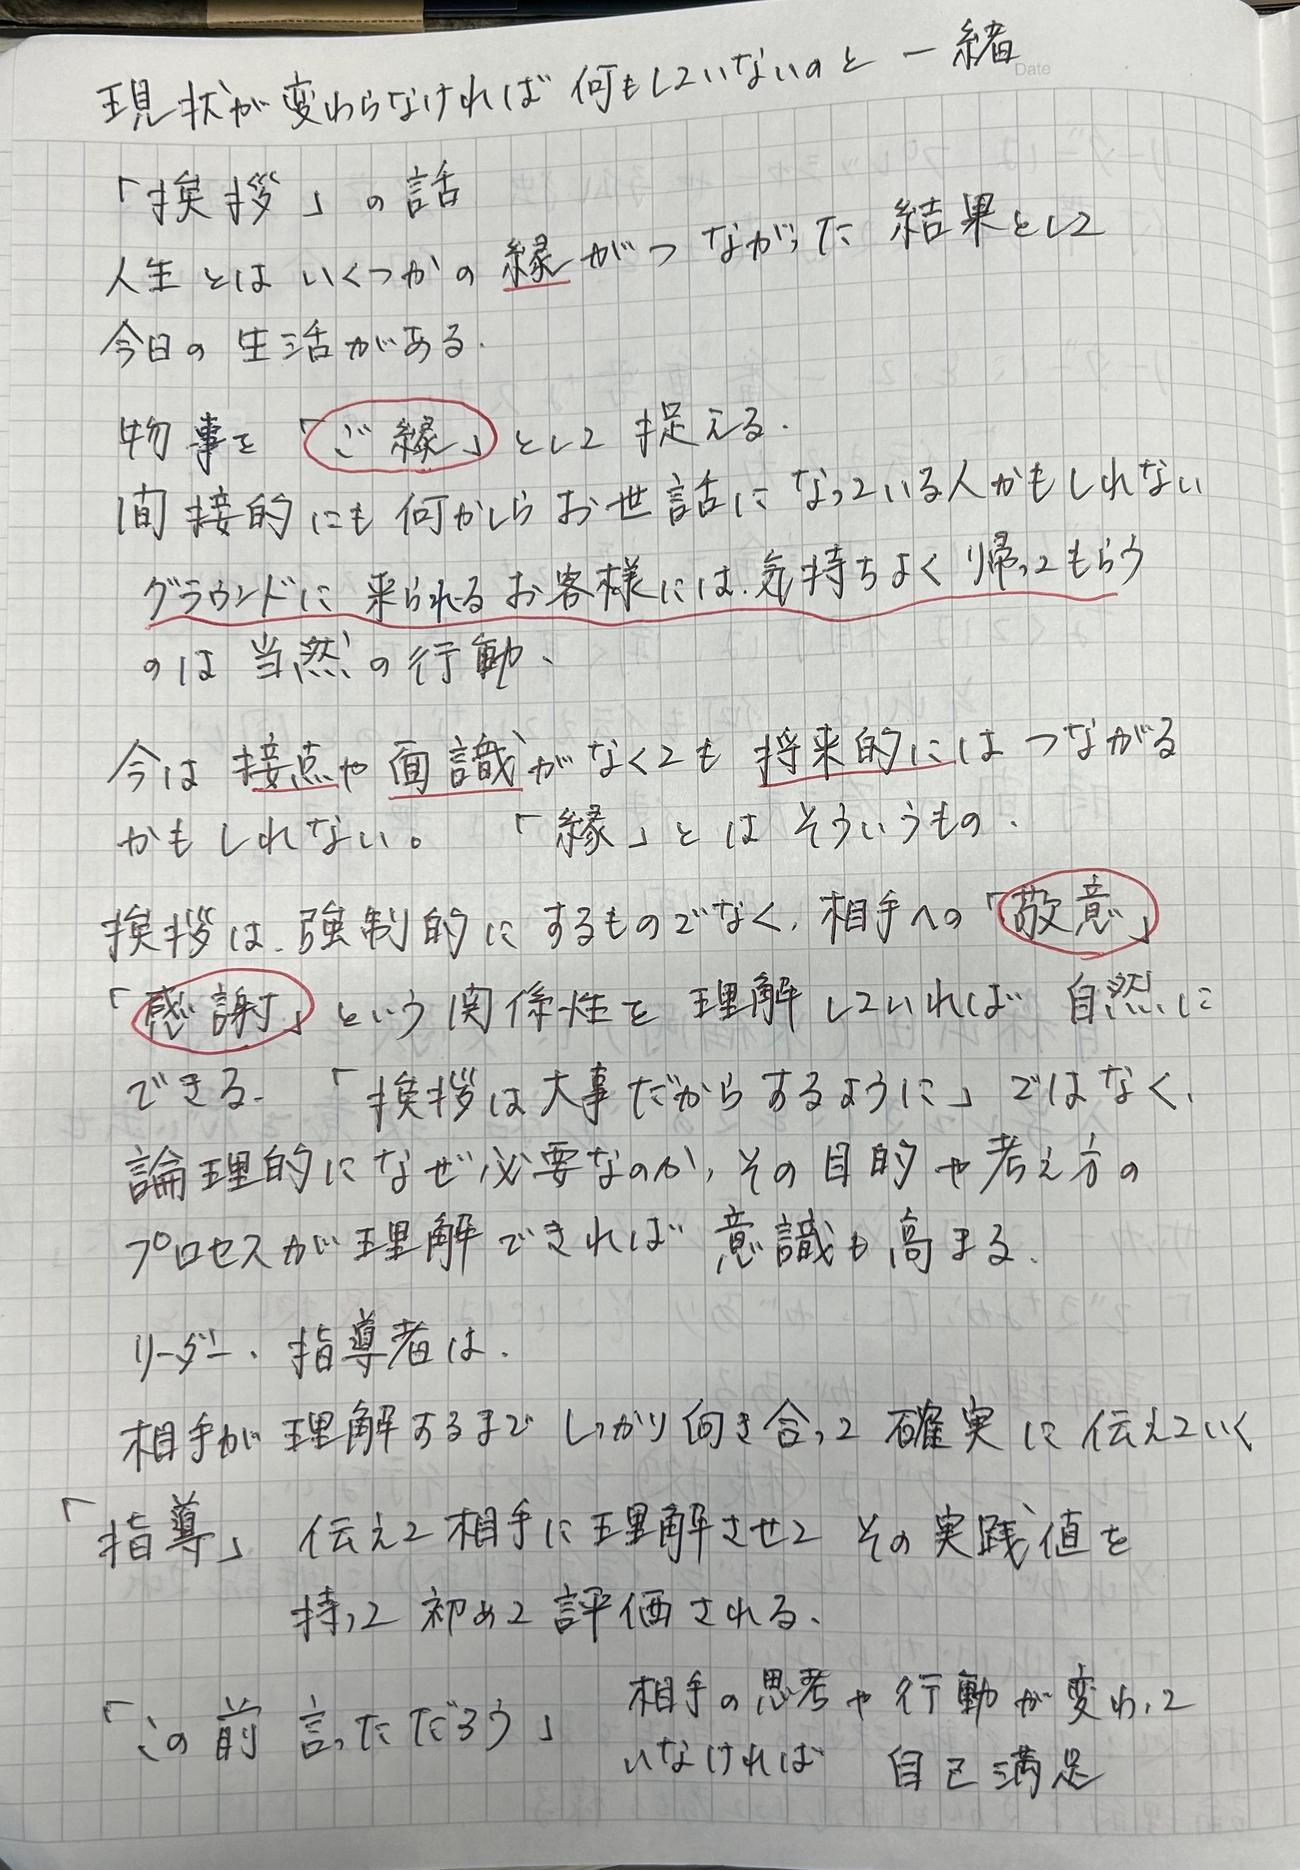 現状が変わらなければ何もしていないのと一緒
Date
「挨拶」の話
人生とはいくつかの縁がつながった結果として
今日の生活がある.
物事を「ご縁」として捉える.
間接的にも何かしらお世話になっている人かもしれない
グラウンドに来られるお客様には、気持ちよく帰ってもらう
のは当然の行動、
今は接点や面識がなくても将来的にはつながる
かもしれない。「縁」とはそういうもの.
挨拶は、強制的にするものでなく、相手への「敬意」
「感謝」という関係性を理解していれば自然に
できる.「挨拶は大事だからするように」ではなく、
論理的になぜ必要なのか、その目的や考え方の
プロセスが理解できれば意識も高まる.
リーダー、指導者は.
相手が理解するまでしっかり向き合って確実に伝えていく
「指導」伝えて相手に理解させてその実践値を
持って初めて評価される、
「この前言っただろう」相手の思考や行動が変わって
いなければ 自己満足